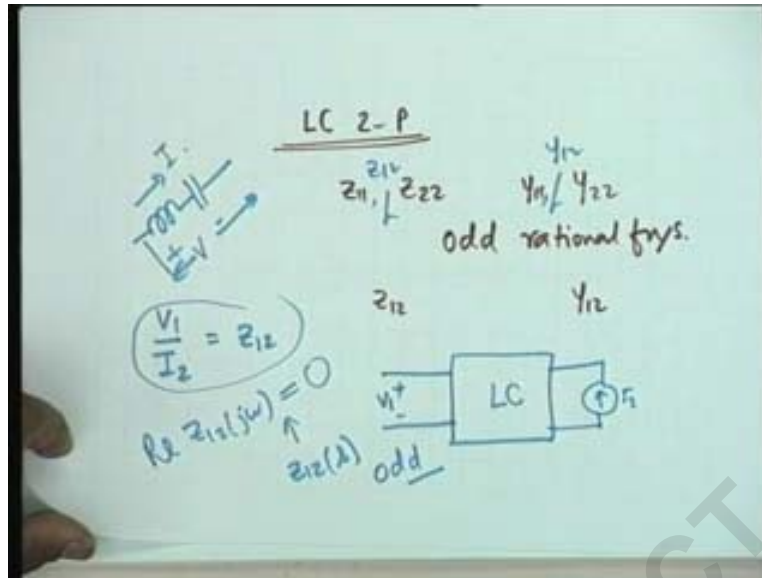 LC 2-P
I.
Z12
Z11, Z22
Y12
Y11, Y22
odd rational fnys.
+ V -
Z12
Y12
V1
/ I2 = Z12
Re Z12(jω) = 0
Z12(s) odd
V1 + -
LC
I2
CT